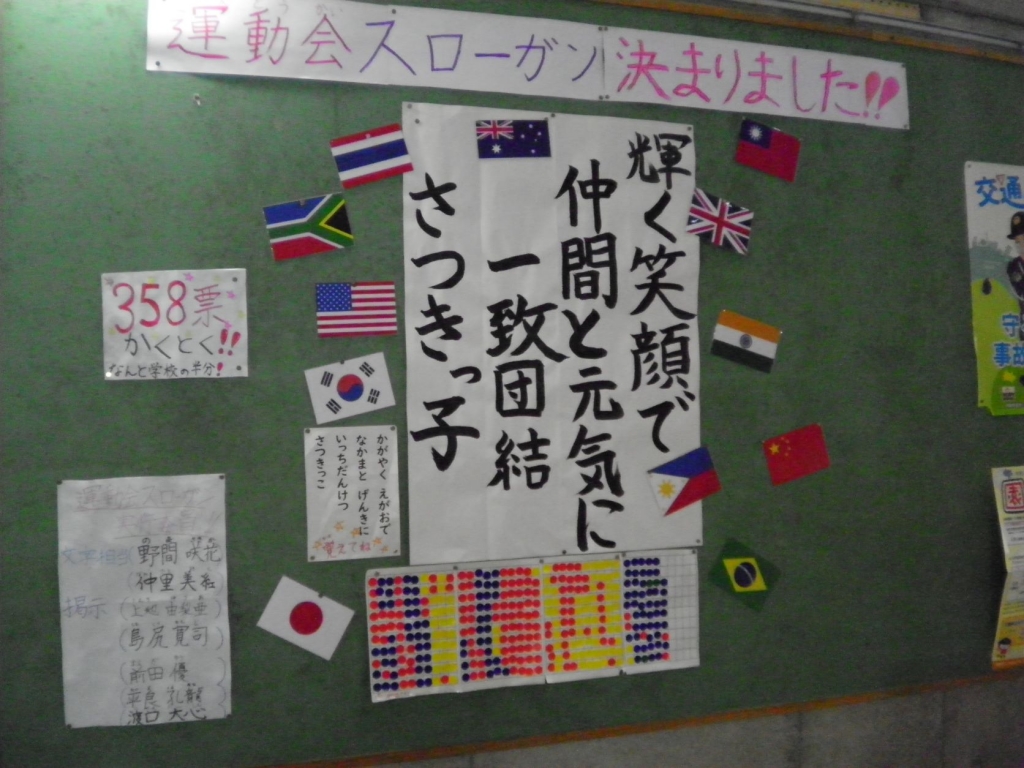 運動会スローガン 決まりました!!
輝く笑顔で
仲間と元気に
一致団結
さつきっ子
358票
かくとく!!
なんと学校の半分!
かがやく えがおで
なかまと げんきに
いっちだんけつ
さつきっこ
覚えてね
運動会スローガン
文字担当 野間 咲花
仲里 美
掲示
島尻 寛司
前田 優
交通
守
事故